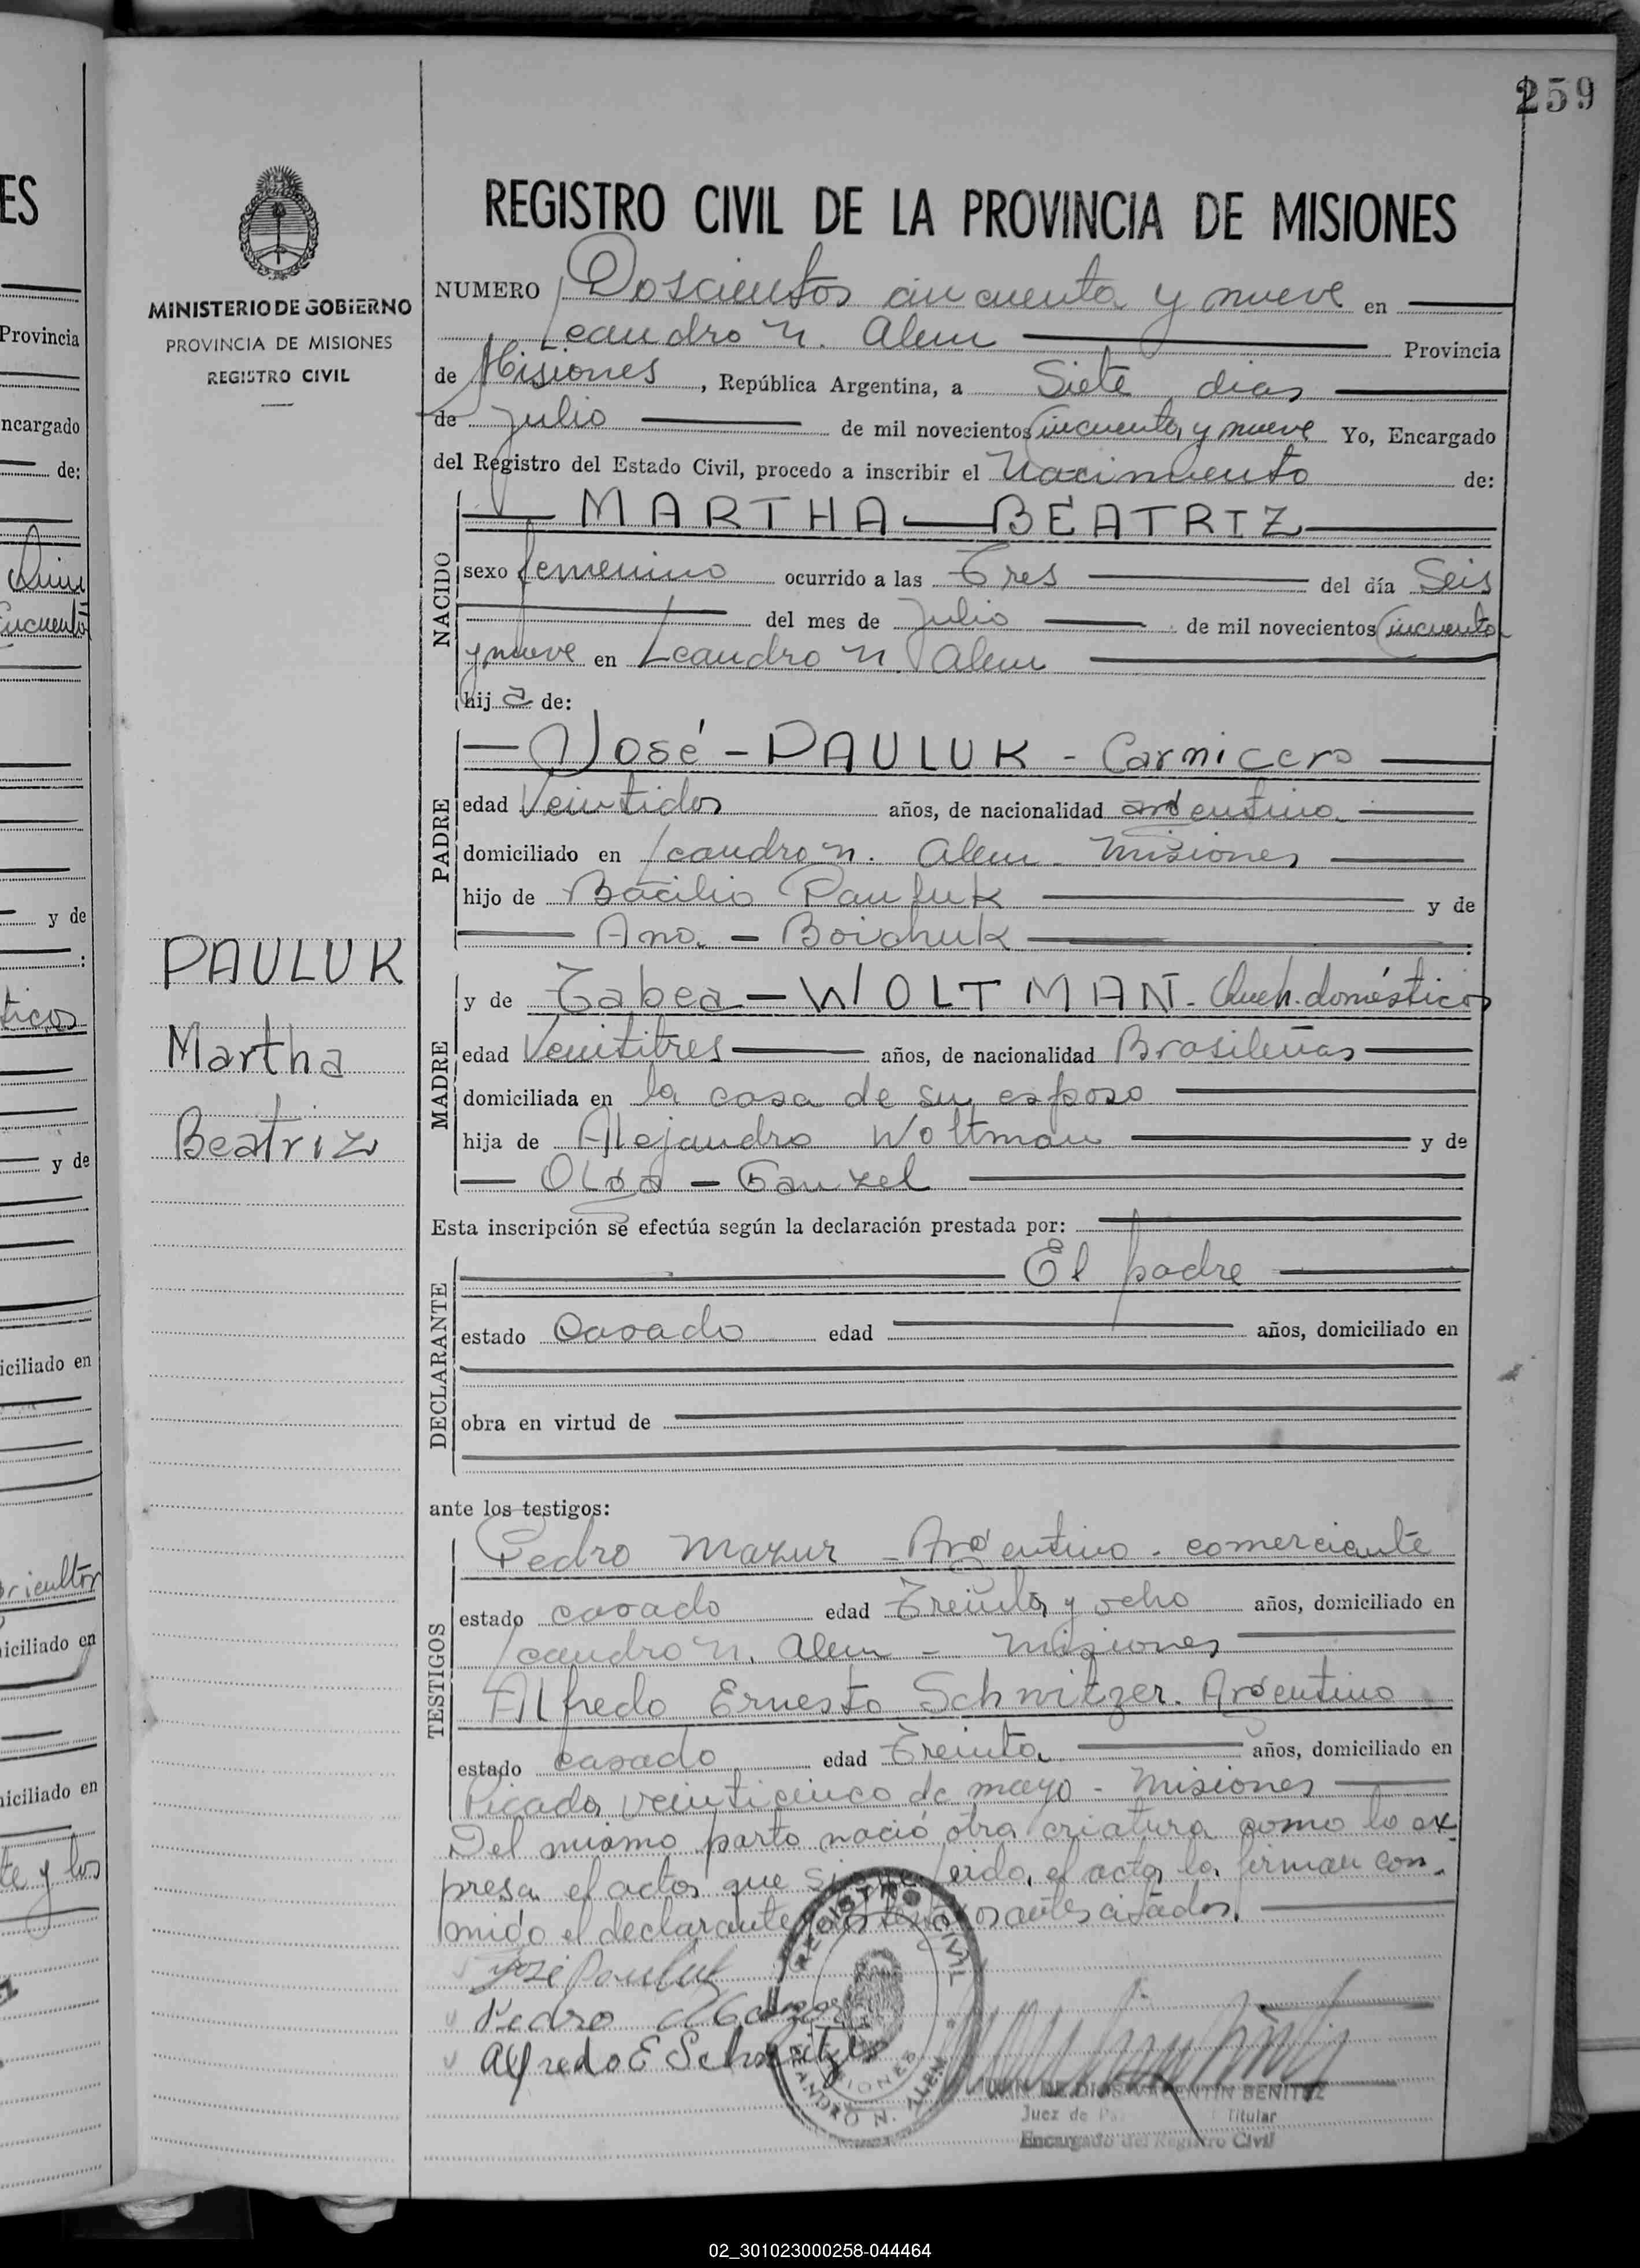 259
ES
REGISTRO CIVIL DE LA PROVINCIA DE MISIONES
MINISTERIO DE GOBIERNO
PROVINCIA DE MISIONES
REGISTRO CIVIL
NUMERO Doscientos cincuenta y nueve en
Leandro N. Alem Provincia
de Misiones, República Argentina, a Siete dias
de Julio de mil novecientos Cincuenta y nueve Yo, Encargado
del Registro del Estado Civil, procedo a inscribir el Nacimiento de:
MARTHA BEATRIZ
NACIDO
sexo femenino ocurrido a las Tres del día Seis
del mes de Julio de mil novecientos Cincuenta
y nueve en Leandro N. Alem
hija de:
José - PAULUK - Carnicero
PADRE
edad Veintidos años, de nacionalidad argentina
domiciliado en Leandro N. Alem - Misiones
hijo de Bacilio Pauluk y de
Ana - Boichuk
PAULUK
Martha
Beatriz
y de Tabea - WOLTMAN - Queh. domésticos
MADRE
edad Veintitres años, de nacionalidad Brasileña
domiciliada en la casa de su esposo
hija de Alejandro Woltman y de
Olga - Ganzel
Esta inscripción se efectúa según la declaración prestada por:
El padre
DECLARANTE
estado Casado edad años, domiciliado en
obra en virtud de
ante los testigos:
Pedro Mazur - Argentino - comerciante
TESTIGOS
estado casado edad Treinta y ocho años, domiciliado en
Leandro N. Alem - Misiones
Alfredo Ernesto Schnitzer. Argentino
estado casado edad Treinta años, domiciliado en
Picada veinticinco de mayo - Misiones
Del mismo parto nació otra criatura como lo ex
presa el acta que sigue leida el acta la firman con-
migo el declarante y los testigos antes citados.
José Pauluk
Pedro
Alfredo E Schnitzer
REGISTRO CIVIL
LEANDRO N. ALEM
MISIONES
JUAN DE DIOS VALENTIN BENITEZ
Juez de Titular
Encargado del Registro Civil
Provincia
ncargado
de:
y de
:
ticos
y de
iciliado en
iciliado en
iciliado en
te y los
02_301023000258-044464